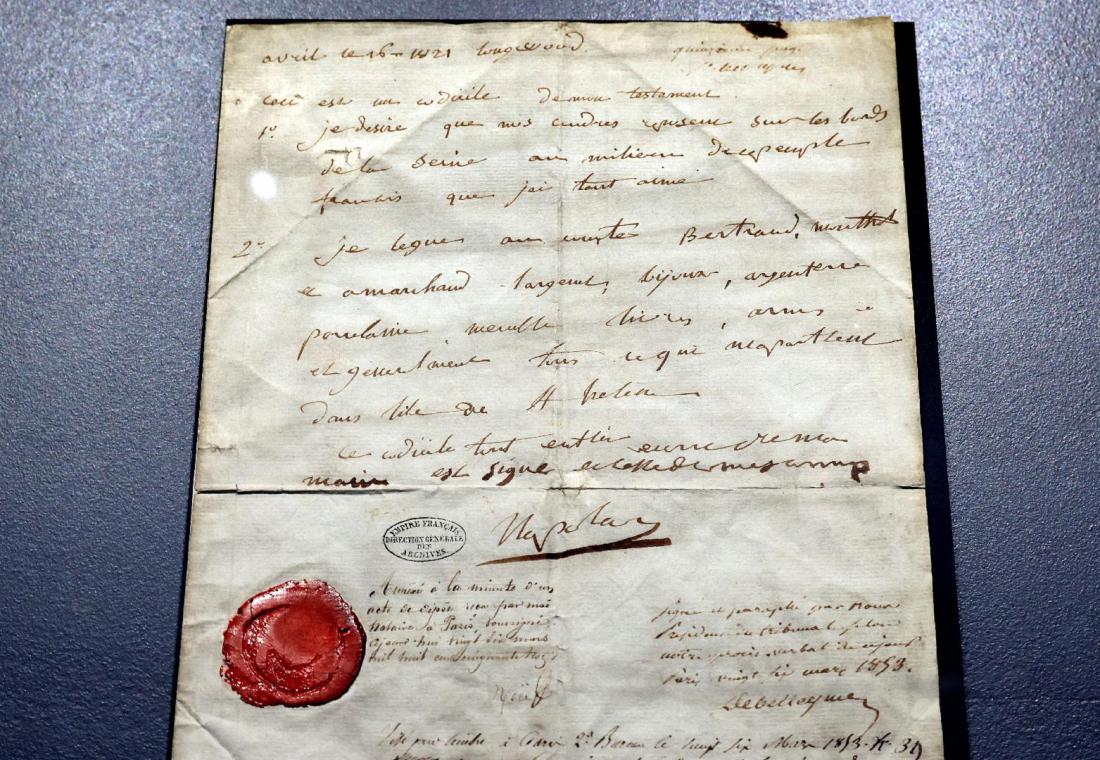 avril le 16 - 1821 longwood.
ceci est un codicile de mon testament
1° je desire que mes cendres reposent sur les bords
de la seine au milieu de ce peuple
francais que jai tant aimé
2° je legue au comte Bertrand, montholon
et a marchand largent, bijoux, argenterie
porcelaine meuble livres, armes
et generalment tous ce qui mapartient
dans lile de St helene
ce codicile tout entier ecrit de ma
main est signé et cacheté de mes armes
Napoleon
EMPIRE FRANÇAIS
DIRECTION GÉNÉRALE
DES
ARCHIVES
Annexé à la minute d'un
acte de dépôt reçu par moi
notaire à Paris soussigné
aujourd'hui vingt six mars
mil huit cent cinquante trois
signé et paraphé par nous
Président du tribunal selon
notre procès verbal de ce jour
Paris vingt six mars 1853.
Debelleyme
Visé pour timbre à Paris 2e Bureau le vingt six Mars 1853